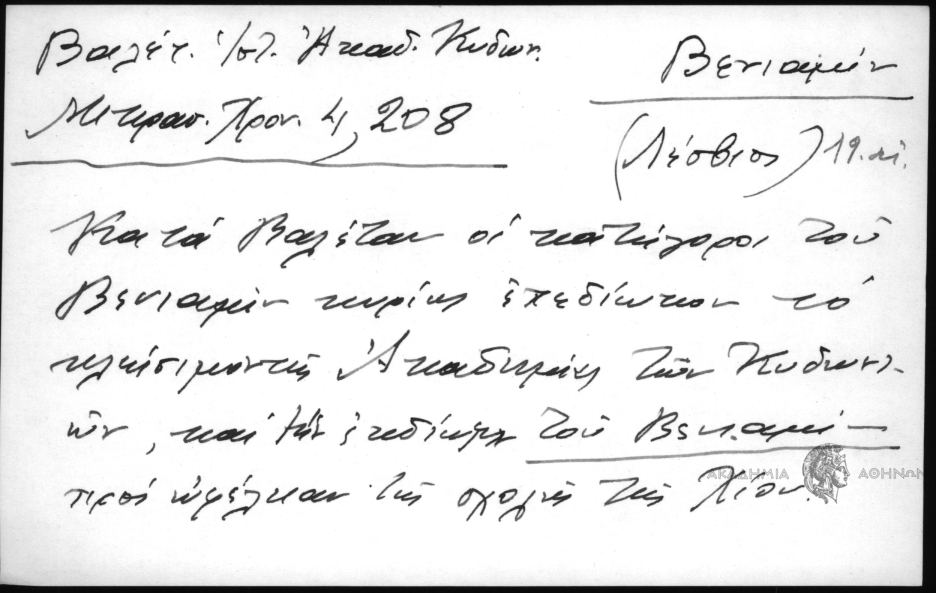 Βαλέτ. Ἱστ. Ἀκαδ. Κυδων.
Μικρασ. Χρον. 4, 208
Βενιαμίν
(Λέσβιος) 19. αἰ.
Κατά Βαλέταν οἱ κατήγοροι τοῦ
Βενιαμίν κυρίως ἐπεδίωκον τό
κλείσιμον τῆς Ἀκαδημίας τῶν Κυδωνι-
ῶν, καί τήν ἐκδίωξιν τοῦ Βενιαμίν
πρός ὠφέλειαν τῆς σχολῆς τῆς Χίου.
ΑΚΑΔΗΜΙΑ ΑΘΗΝΩΝ